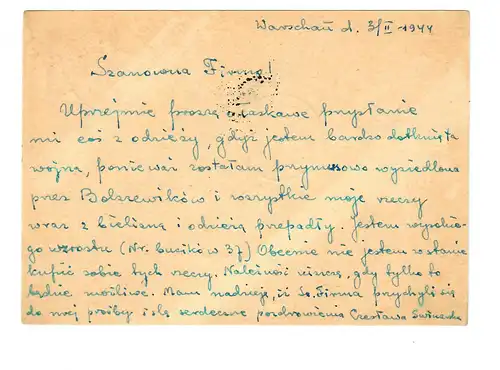 Warschau d. 3/II 1944
Szanowna Firmo!
Uprzejmie proszę o łaskawe przysłanie
mi coś z odzieży, gdyż jestem bardzo dotknięta
wojną, ponieważ zostałam przymusowo wysiedlona
przez Bolszewików i wszystkie moje rzeczy
wraz z bielizną i odzieżą przepadły. Jestem wysokie-
go wzrostu (Nr. bucików 37) Obecnie nie jestem w stanie
kupić sobie tych rzeczy. Należność zwrócę, gdy tylko to
będzie możliwe. Mam nadzieję, iż Sz. Firma przychyli się
do mej prośby i ślę serdeczne pozdrowienia Czesława